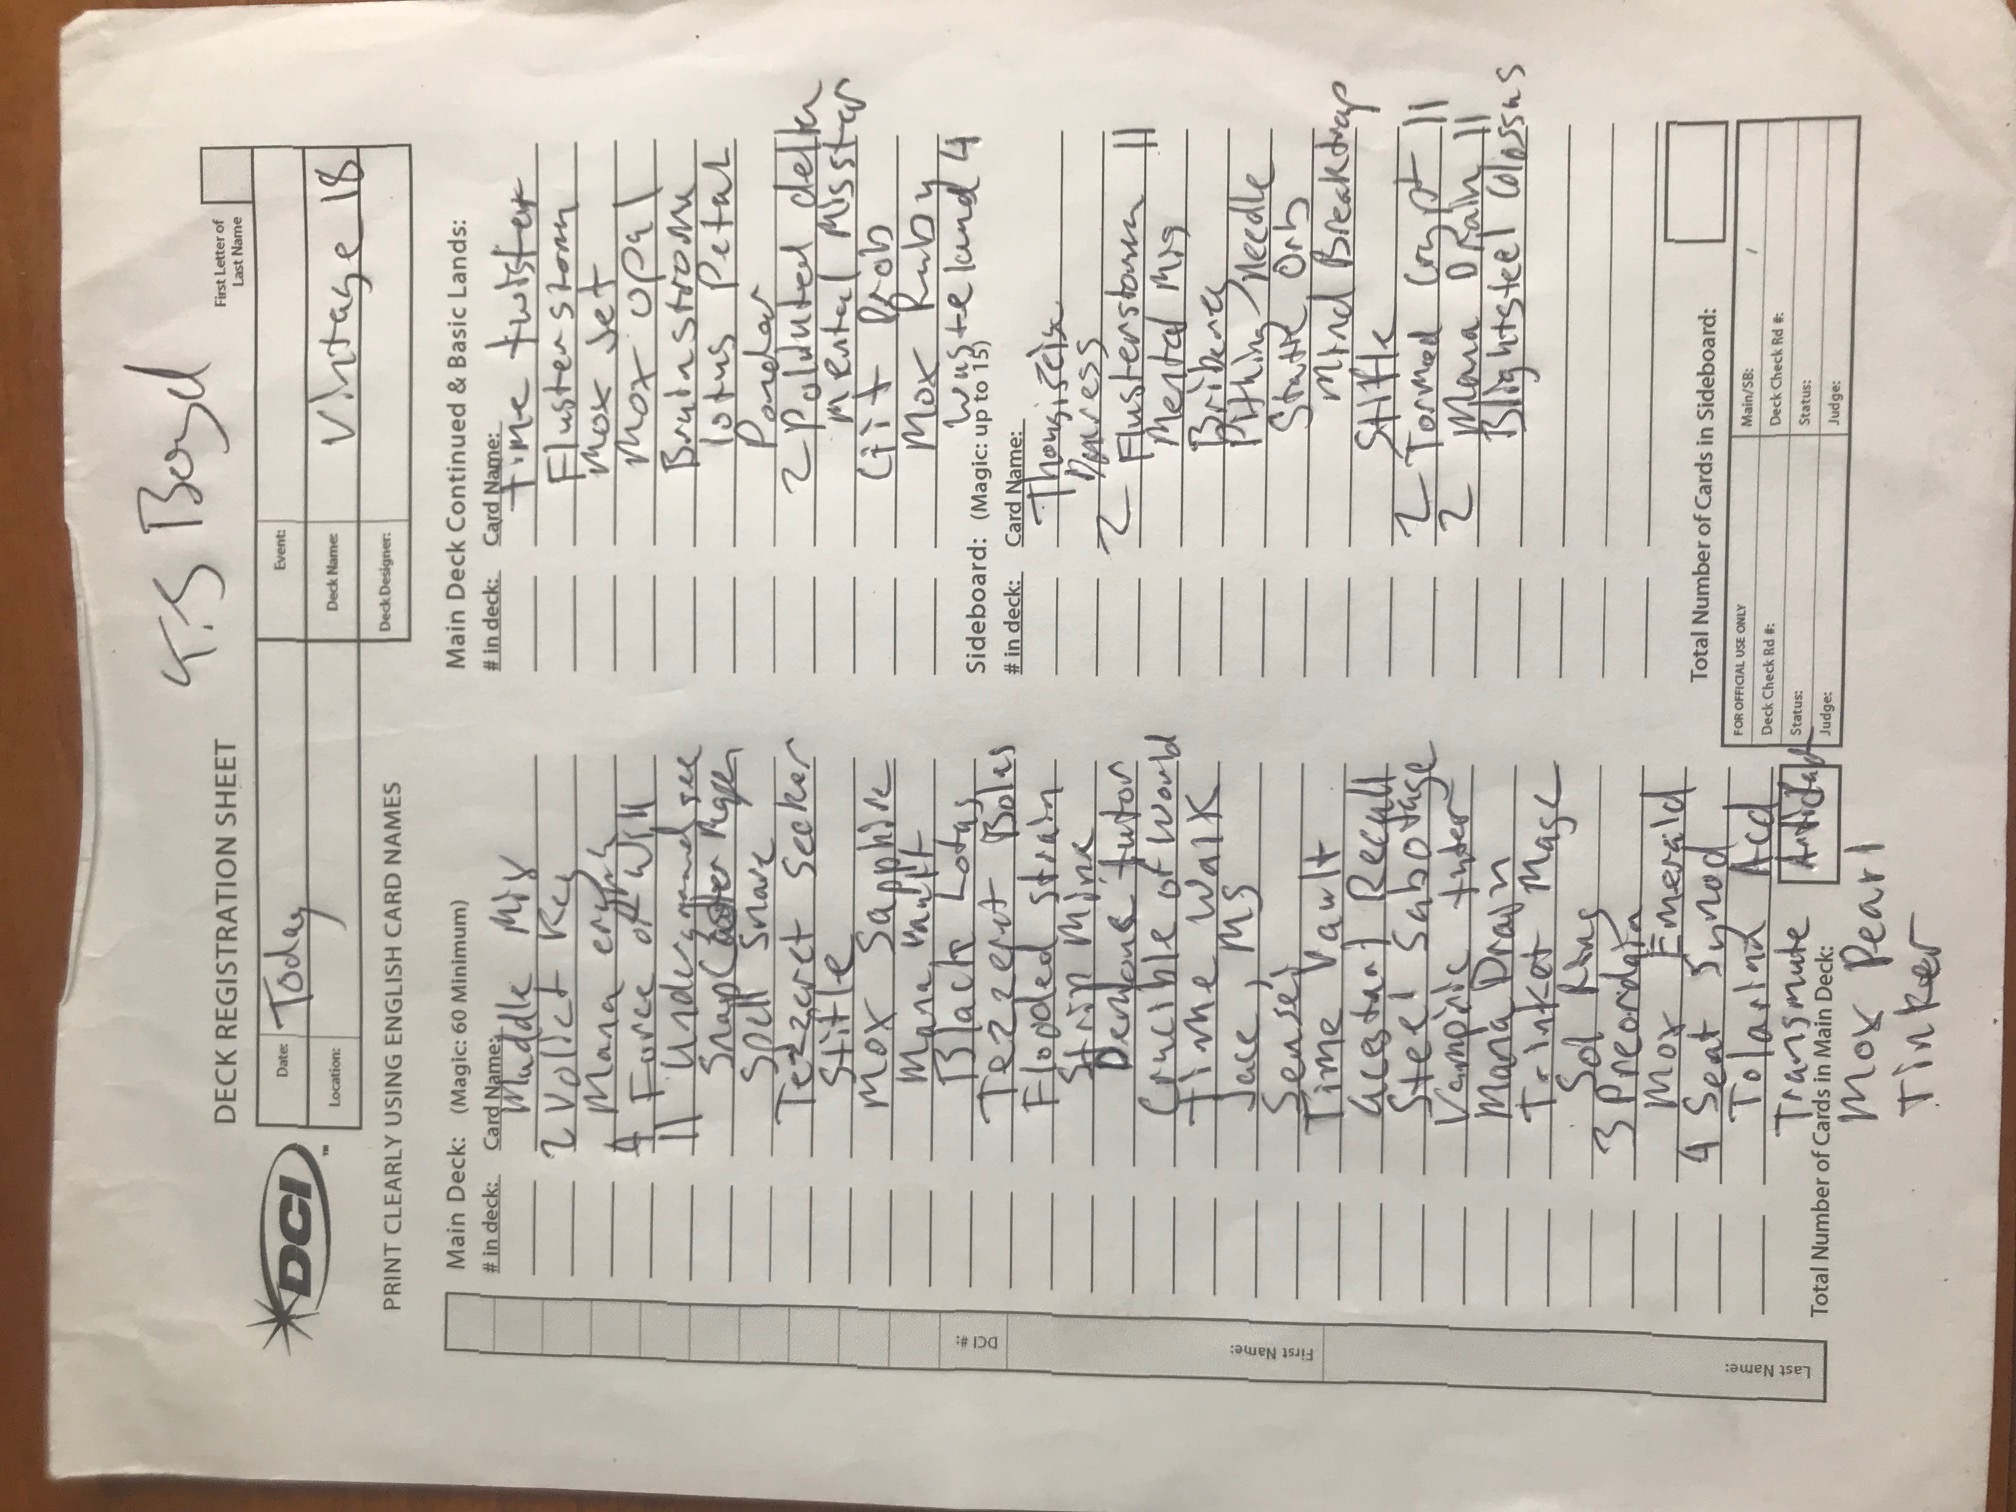 T.J Boyd
DECK REGISTRATION SHEET
First Letter of
Last Name
DCI
TM
Date: Today
Event:
Location:
Deck Name: Vintage 18
Deck Designer:
PRINT CLEARLY USING ENGLISH CARD NAMES
Main Deck: (Magic: 60 Minimum)
# in deck: Card Name:
Muddle Mix
2 Volict Key
Mana
4 Force of Will
11 Underground see
SnapCaster
Spell Snare
Tezzeret Seeker
Stifle
Mox Sapphire
Mana Vault
Black Lotus
Tezzeret Bolas
Flooded strain
Strip Mine
Demonc tutor
Crucible of World
Time Walk
Jace, MS
Sensei
Time Vault
Recall
Steel Sabotage
Vampiric tuter
Mana Drain
Trinket Mage
Sol Ring
3 Preordain
Mox Emerald
4 Seat Synod
Tolarina Acd
Transmute Artifact
Total Number of Cards in Main Deck:
Mox Pearl
Tinker
Main Deck Continued & Basic Lands:
# in deck: Card Name:
Time twister
Flusterstorm
Mox Jet
Mox opal
Brainstrom
lotus Petal
Ponder
2 Poluuted delta
Mental Misstep
Git Prob
Mox Ruby
Wasteland 4
Sideboard: (Magic: up to 15)
# in deck: Card Name:
Duress
2 Flusterstorm 11
Mental Mis
Bribery
Pithing Needle
Static Orb
Mind Breaktrap
Stifle
2 Tormed Crypt 11
2 Mana Drain 11
Blightsteel Colossus
Total Number of Cards in Sideboard:
FOR OFFICIAL USE ONLY
Main/SB: /
Deck Check Rd #:
Deck Check Rd #:
Status:
Status:
Judge:
Judge:
DCI #:
First Name:
Last Name: